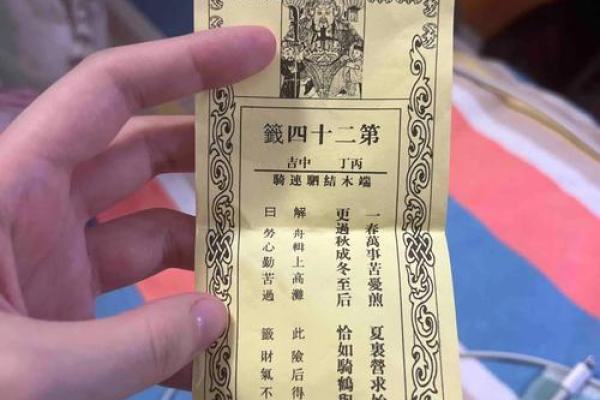 第二十四籤
丙丁 中吉
端木結駟連騎
一春萬事苦憂煎 夏裏營求
更過秋成冬至后 恰如騎鶴
解 舟輯上高灘 此險后得
曰 勞心勤苦過 籤 財氣不